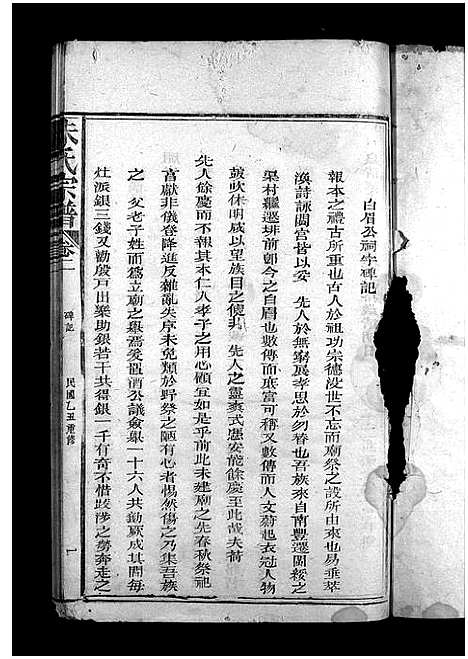 白眉公祠宇碑記
報本之禮古所重也古人於祖功宗德沒世不忘而廟祭之設所由來也易垂萃
渙詩詠閟宮皆以妥 先人於無窮展孝思於勿替也吾族來自南豐遷園綏之
渠村繼遷垪前卽今之白眉也數傳而庶富可稱又數傳而人文蔚起衣冠人物
鼓吹休明咸以望族目之使非 先人之靈爽式憑安能餘慶至此哉夫荷
先人餘慶而不報其本仁人孝子之用心顧宜如是乎前此未建廟之先春秋祭祀
言獻非儀登降進反雜亂失序未免類於野祭之陋有心者惕然傷之乃集吾族
之 父老子姓而爲立廟之舉焉爰酒公議僉舉一十六人共勷厥成其間每
灶派銀三錢又勸殷戶出樂助銀若干共得銀一千有奇不惜跋涉之勞奔走之
朱氏宗譜
卷一
碑記
民國乙丑重修
一